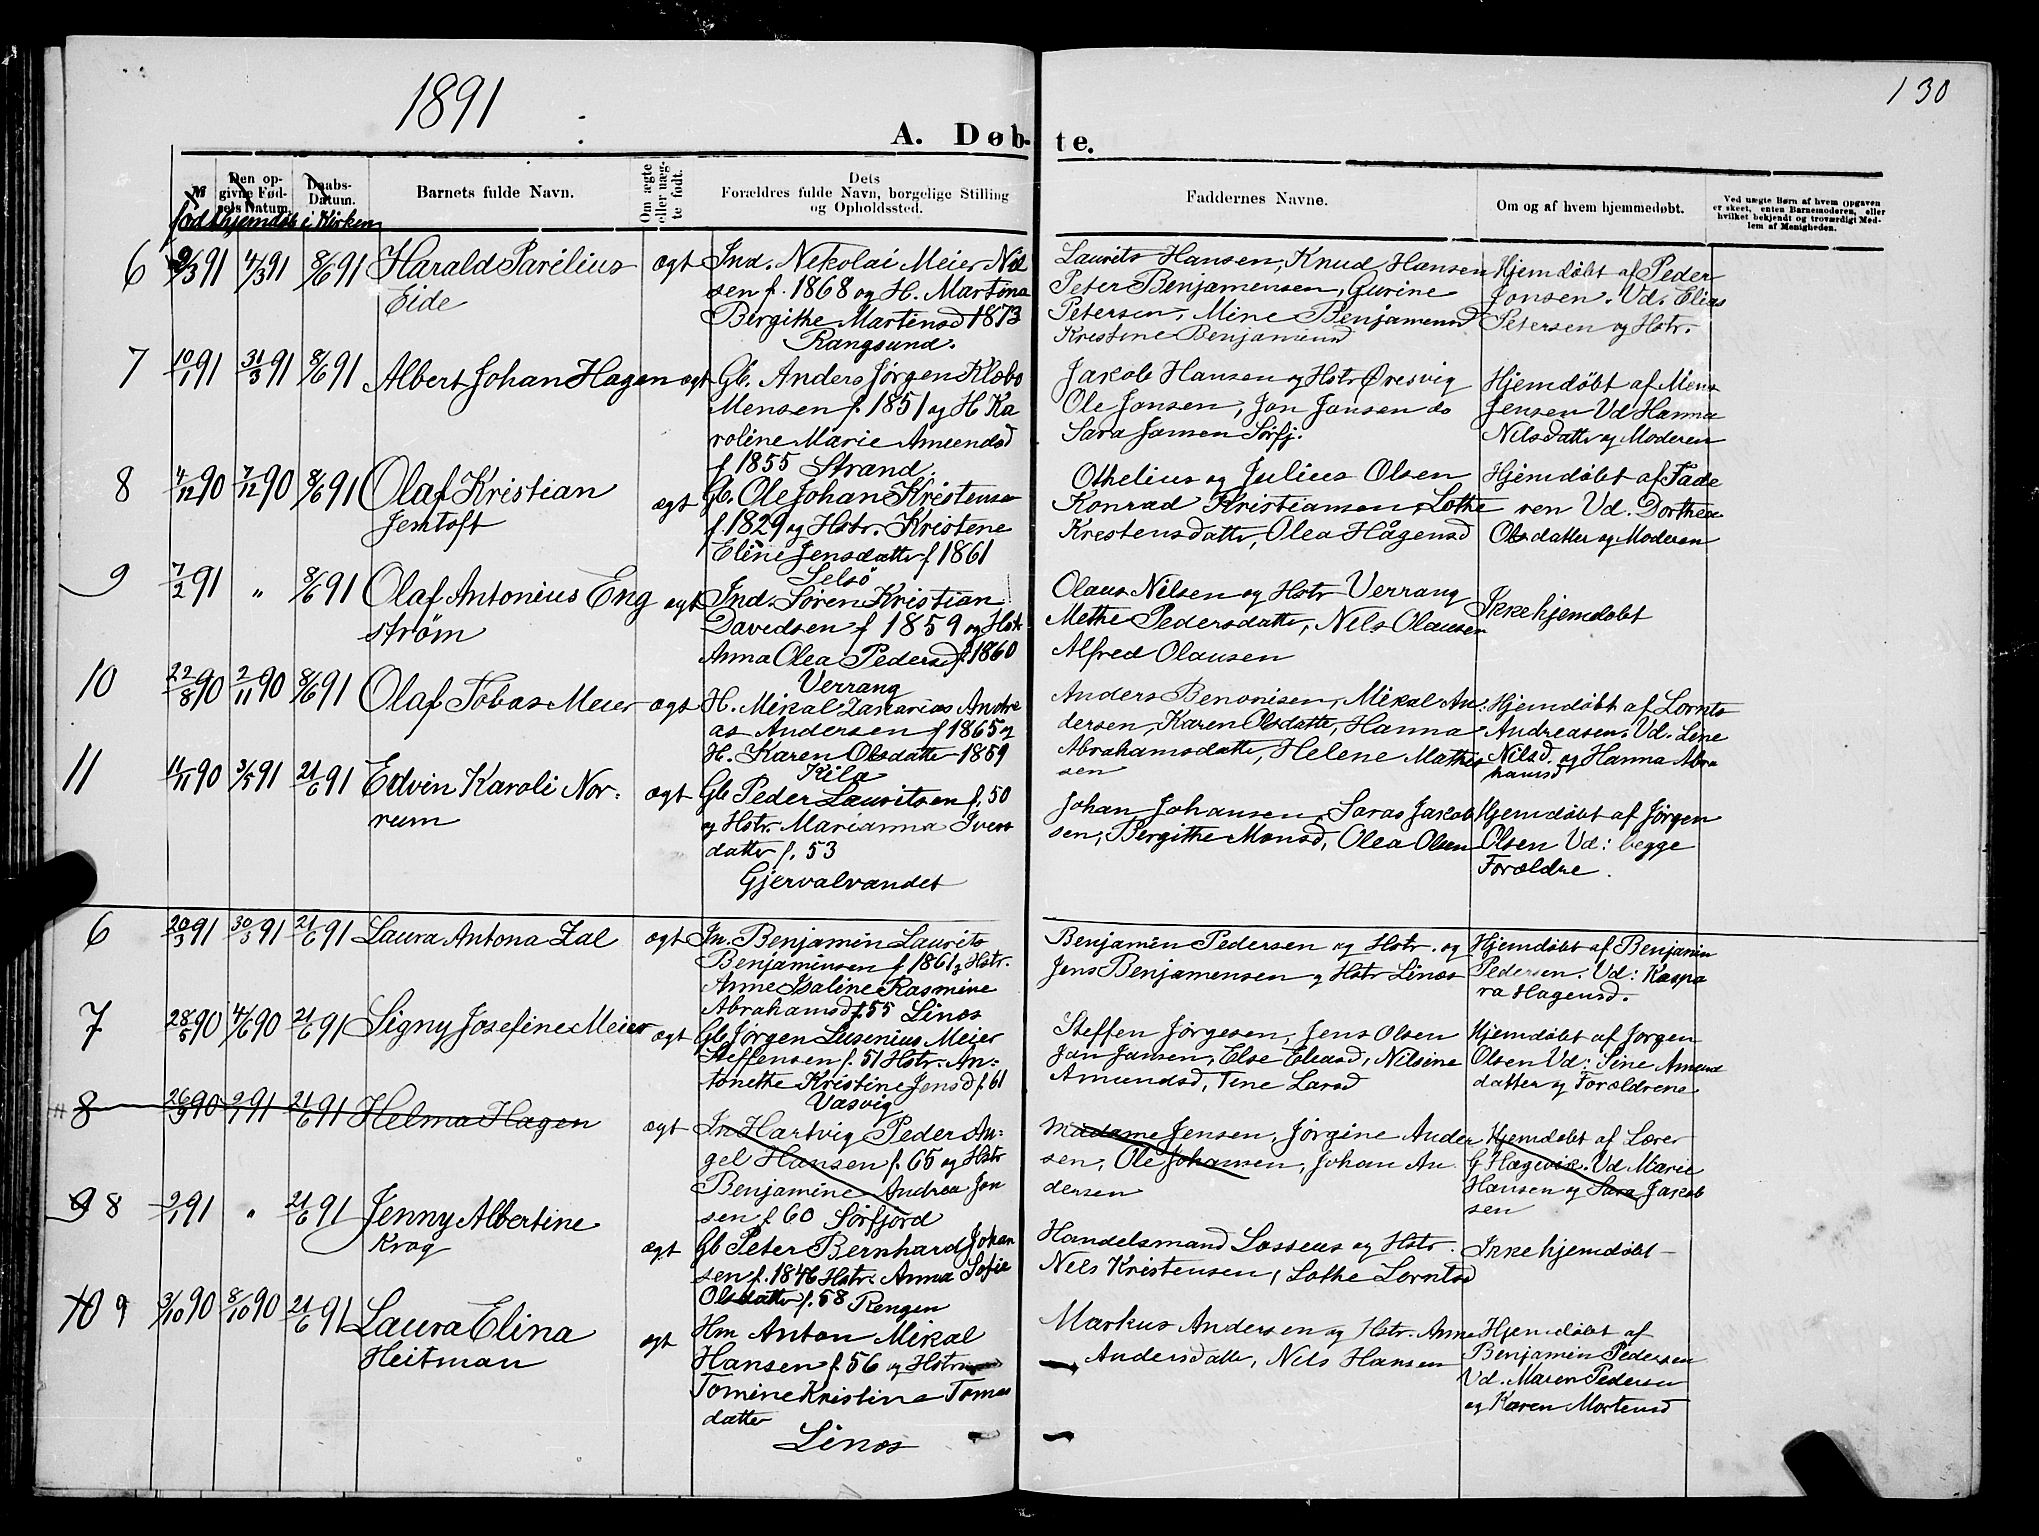 1891
130
A. Døb-
te.
№
Den op-
givne Fød-
sels Datum.
Daabs-
Datum.
Barnets fulde Navn.
Om ægte
eller uæg-
te født.
Dets
Forældres fulde Navn, borgelige Stilling
og Opholdssted.
Faddernes Navne.
Om og af hvem hjemmedøbt.
Ved uægte Børn af hvem Opgaven
er skeet, enten Barnemoderen, eller
hvilket bekjendt og troværdigt Med-
lem af Menigheden.
født hjemdøbt i Kirken
6 2/3 91 4/3 91 8/6 91 Harald Parelius
Eide
ægt
Ind. Nekolai Meier Nil
sen f. 1868 og H. Martina
Bergithe Martinsd 1873
Rangsund.
Laurits Hansen, Knud Hansen
Peter Benjamensen, Gurine
Petersen, Mine Benjamensd
Kristine Benjamensd
Hjemdøbt af Peder
Jonsen. Vd. Elias
Petersen og Hstr.
7 10/1 91 31/3 91 8/6 91 Albert Johan Hagen ægt
Gb. Anders Jørgen Klæbo
Mensen f. 1851 og H Ka
roline Marie Amundsd
f 1855 Strand.
Jakob Hansen og Hstr Øresvig
Ole Jonsen, Jon Jonsen do
Sara Jonsen Sørfj.
Hjemdøbt af Mens
Jensen Vd Hanna
Nilsdatter og Moderen
8 4/12 90 7/12 90 8/6 91 Olaf Kristian
Jemtoft
ægt
Gb. Ole Johan Kristensen
f 1829 og Hstr. Kristene
Eline Jensdatter f 1861
Selsø
Othelius og Julius Olsen
Konrad Kristiansen, Lothe
Krestensdatter, Olea Hågensd
Hjemdøbt af Fade
ren Vd. Dorthea
Olsdatter og Moderen
9 7/2 91 " 8/6 91 Olaf Antonius Eng
strøm
ægt
Ind. Søren Kristian
Davidsen f 1859 og Hstr
Anna Olea Pedersd f. 1860
Verrang
Olaus Nilsen og Hstr Verrang
Methe Pedersdatter, Nils Olausen
Alfred Olausen
Ikke hjemdøbt
10 22/8 90 2/11 90 8/6 91 Olaf Tobas Meier ægt
H. Mikal Zakarias Andre
as Andersen f 1865 og
H. Karen Olsdatter 1859
Kila
Anders Benonisen, Mikal An
dersen, Karen Olsdatter, Hanna
Abrahamsdatter, Helene Mathis
sen
Hjemdøbt af Lornts
Andreasen. Vd. Lene
Nilsd. og Hanna Abra
hamsd
11 11/11 90 3/5 91 21/6 91 Edvin Karoli Nor-
rum
ægt
Gb Peder Lauritsen f. 50
og Hstr. Marianna Ivers
datter f. 53
Gjervalvandet
Johan Johansen, Saras Jakob
sen, Bergithe Monsd, Olea Olsen
Hjemdøbt af Jørgen
Olsen Vd: begge
Forældre.
6 20/3 91 30/3 91 21/6 91 Laura Antona Zal ægt
In. Benjamin Laurits
Benjaminsen f 1861 og Hstr.
Anne Isaline Rasmine
Abrahamsd f. 55 Linæs
Benjamin Pedersen og Hstr. og
Jens Benjamensen og Hstr Linæs
Hjemdøbt af Benjamin
Pedersen. Vd: Kaspa
ra Hagensd.
7 28/5 90 4/6 90 21/6 91 Signy Josefine Meier ægt
Gb Jørgen Lusenius Meier
Steffensen f. 51 Hstr. An-
tonette Kristine Jensd f. 61
Vasvig
Steffen Jørgesen, Jens Olsen
Jan Jansen, Else Eleasd, Nilsine
Amundsd, Tine Larsd
Hjemdøbt af Jørgen
Olsen Vd: Sine Amund
datter og Forældrene
8 90 2/1 91 21/6 91 Helma Hagen
ægt
In Hartvig Peder An-
gel Hansen f. 65 og Hstr
Benjamine Andrea Jon
sen f 60 Sørfjord
Madame Jensen, Jørgine Ander
sen, Ole Johansen, Johan An
dersen
Hjemdøbt af Lærer
G Hægivik. Vd Marie
Hansen og Sara Jakob
sen
9 8 2/1 91 " 21/6 91 Jenny Albertine
Krog
ægt
Gb Peter Bernhard Johan
sen f. 1846 Hstr. Anna Sofie
Olsdatter f. 58 Rengen
Handelsmand Lossius og Hstr.
Nils Kristensen, Lothe Lorntsd
Ikke hjemdøbt
10 9 3/10 90 8/10 90 21/6 91 Laura Elina
Heitman
ægt
Hm Anton Mikal
Hansen f. 56 og Hstr
Tomine Kristine Tomas
datter
Linæs
Markus Andersen og Hstr. Anne
Andersdatter, Nils Hansen
Hjemdøbt af
Benjamin Pedersen
Vd. Maren Pedersen
og Karen Mortensd